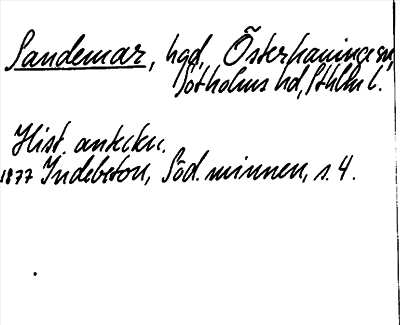 Sandemar, hgd, Österhaninge sn,
Sotholms hd, Sthlm l.
Hist. anteckn.
1877 Indebetou, Söd. minnen, s. 4.